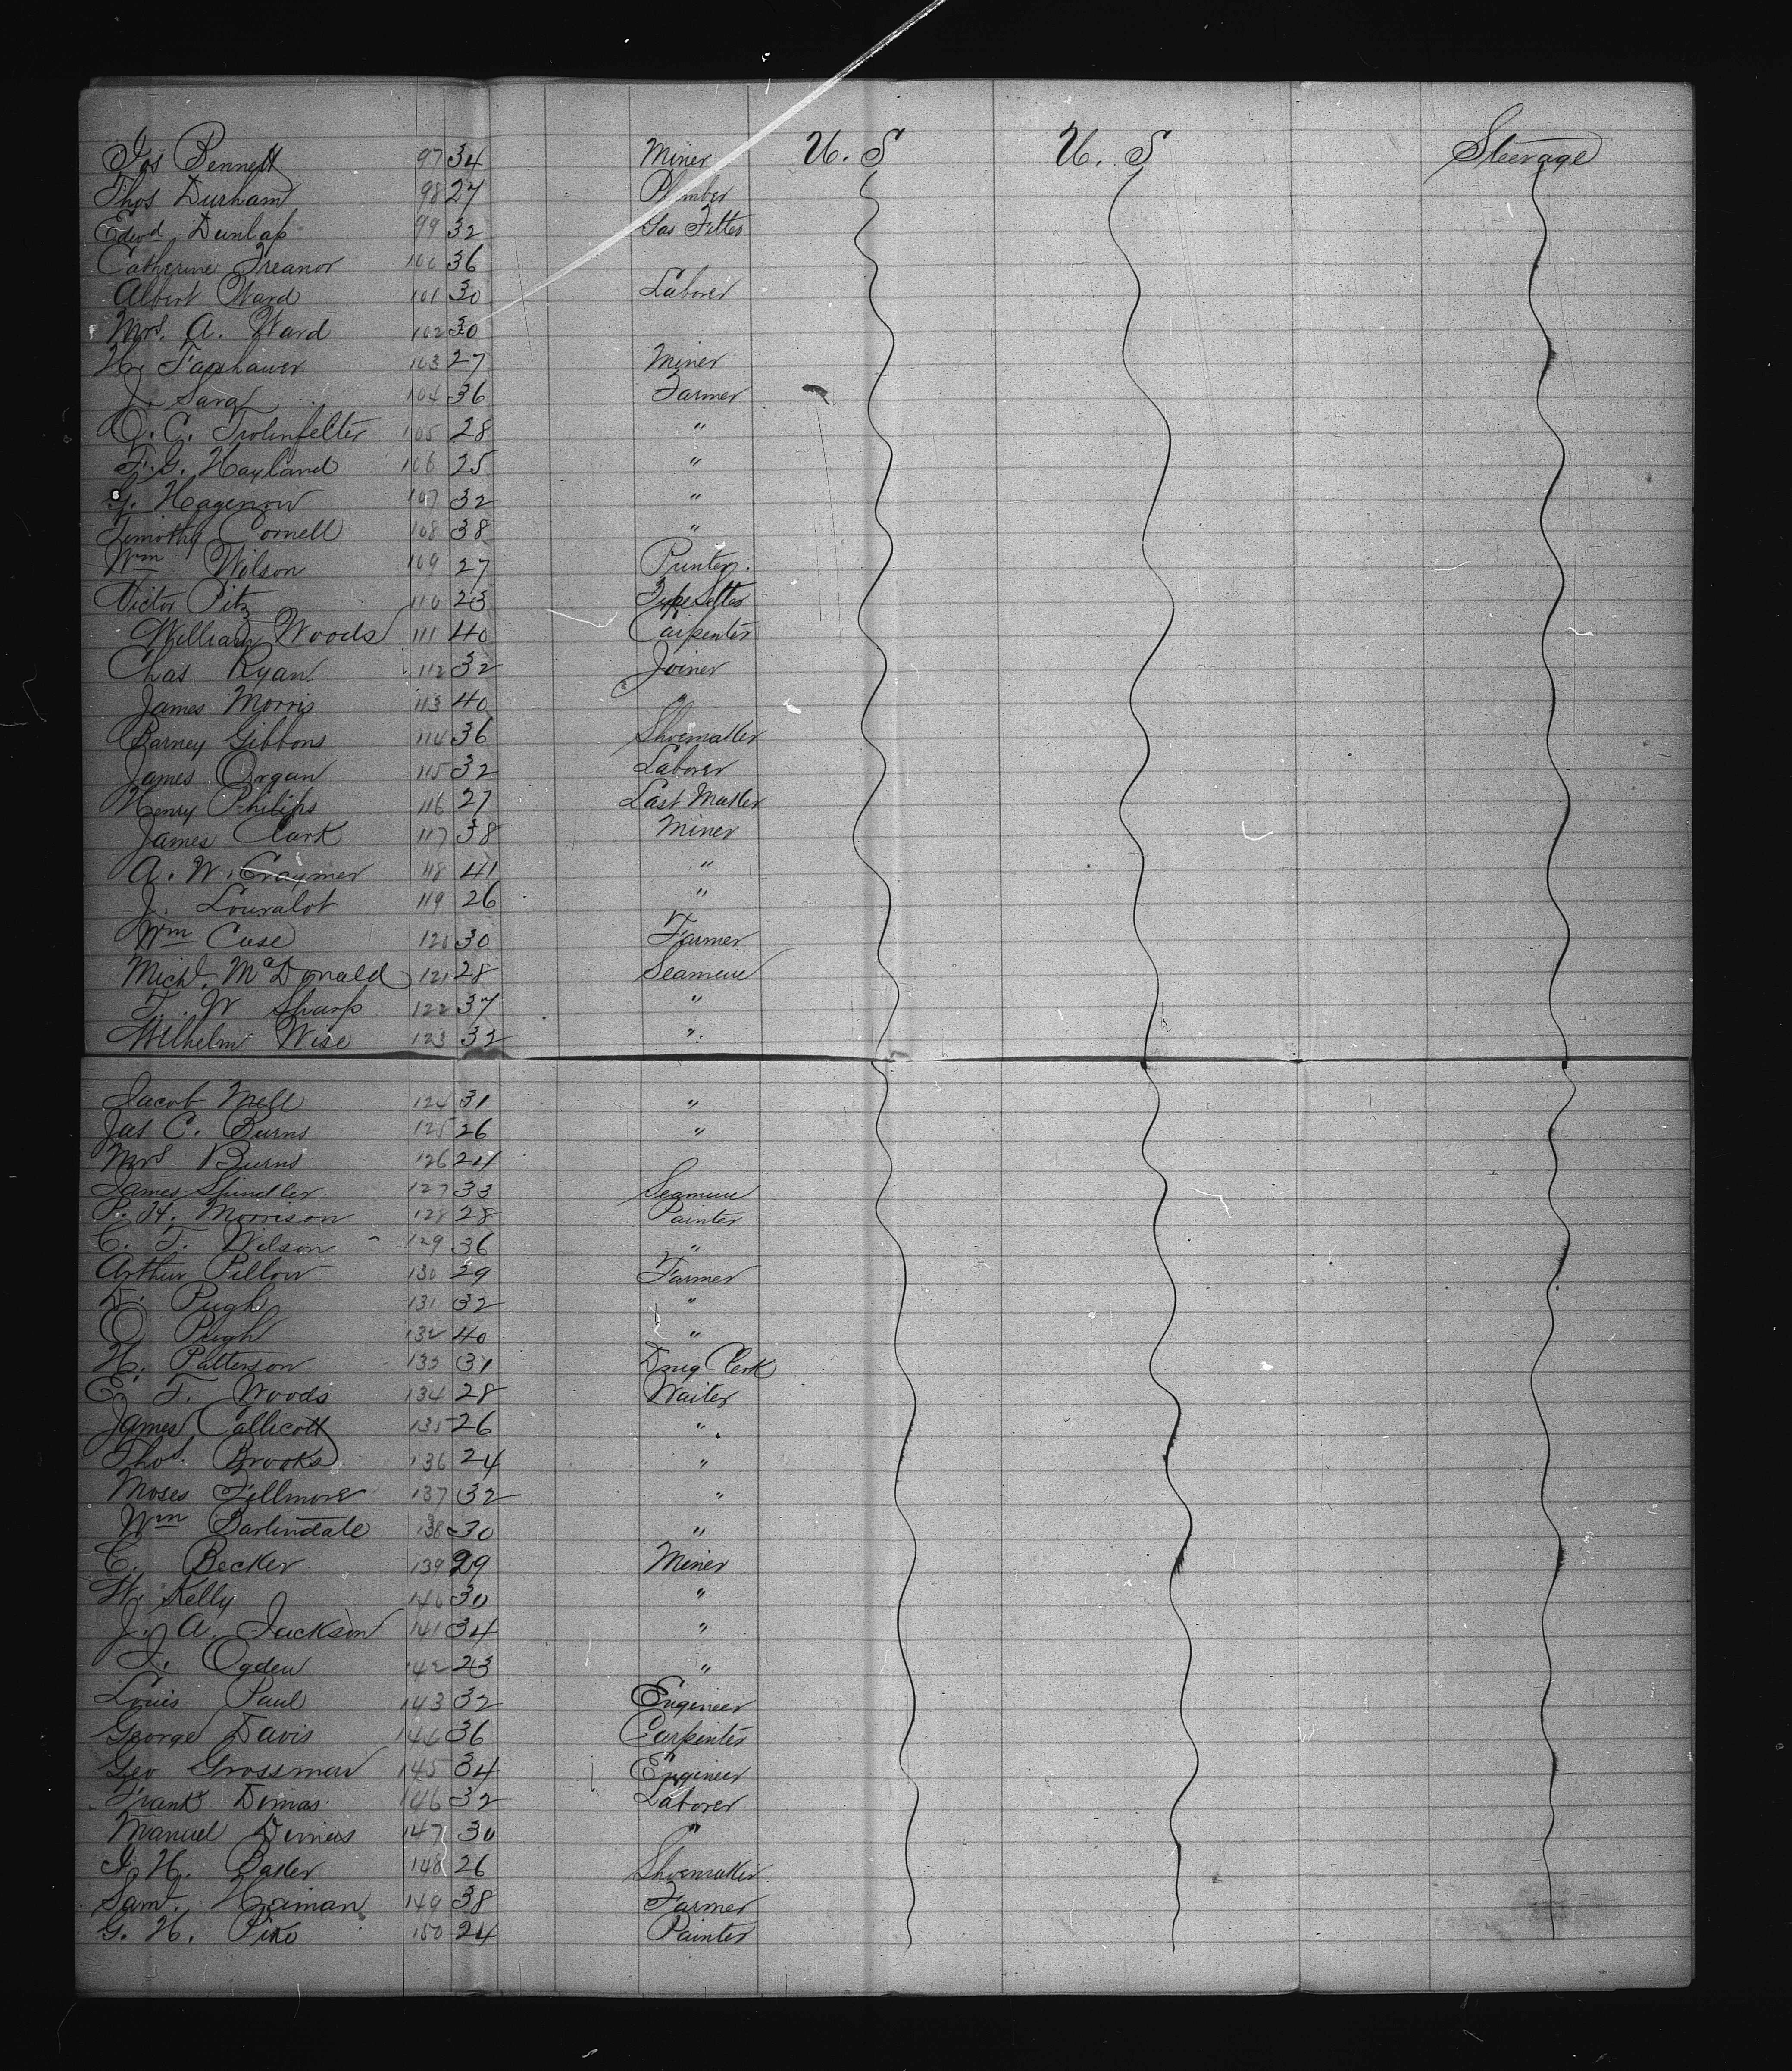 Jos Bennett 97 34 Miner U. S U. S Steerage
Thos Durham 98 27 Plumber
Edwd Dunlap 99 32 Gas Fitter
Catherine Treanor 100 36
Albert Ward 101 30 Laborer
Mrs. A. Ward 102 30
H. 103 27 Miner
J. Sarg 104 36 Farmer
O. C. Trolinfelter 105 28 "
F. G. Hayland 106 25 "
G. Hagenow 107 32 "
Timothy Cornell 108 38 "
Wm Wilson 109 27 Printer.
Victor Pitz 110 23 Type Setter
William Woods 111 40 Carpenter
Chas Ryan 112 32 Joiner
James Morris 113 40 "
Barney Gibbons 114 36 Shoemaker
James Organ 115 32 Laborer
Henry Philips 116 27 Last Maker
James Clark 117 38 Miner
A. W. Craymer 118 41 "
J. Louralot 119 26 "
Wm Case 120 30 Farmer
Michl. McDonald 121 28 Seamen
T. W Sharp 122 37 "
Wilhelm Wise 123 32 "
Jacob Mell 124 31 "
Jas C. Burns 125 26 "
Mrs Burns 126 24
James Spindler 127 33 Seamen
P. H. Morrison 128 28 Painter
C. F. Wilson 129 36 "
Arthur Pillow 130 29 Farmer
D. Pugh 131 32 "
O Pugh 132 40 "
H. Patterson 133 31 Drug Clerk
E. F. Woods 134 28 Waiter
James Callicott 135 26 "
Thos. Brooks 136 24 "
Moses Fillmore 137 32 "
Wm Barlindale 138 30 "
C. Becker 139 29 Miner
W. Kelly 140 30 "
J. A. Jackson 141 34 "
I. Ogden 142 23 "
Louis Paul 143 32 Engineer
George Davis 144 36 Carpenter
Geo Grossman 145 34 Engineer
Frank Dimas 146 32 Laborer
Manuel 147 30 "
J. H. Baker 148 26 Shoemaker
Saml. Haiman 149 38 Farmer
G. H. Pike 150 24 Painter